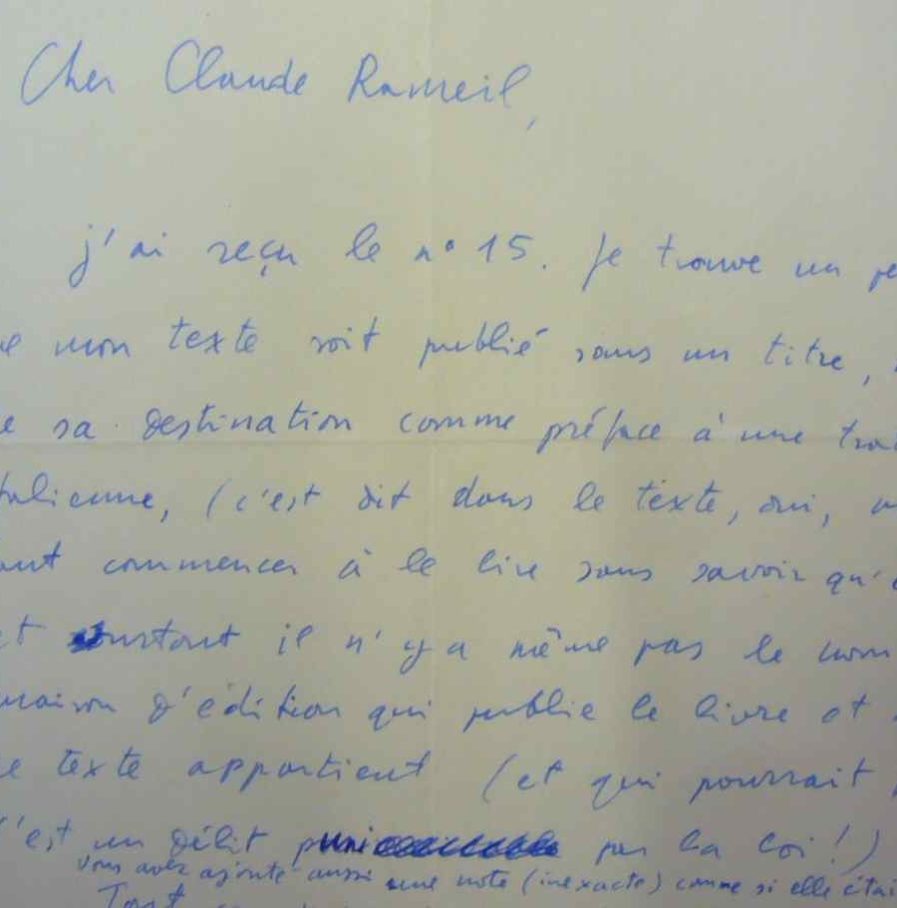 Cher Claude Rameil,
j'ai reçu le n° 15. Je trouve un pe
mon texte soit publié sans un titre,
sa destination comme préface à une tra
talienne, (c'est dit dans le texte, oui,
aut commencer à le lire sans savoir qu'
et surtout il n'y a même pas le nom
maison d'édition qui publie le livre et
texte appartient (et qui pourrait
c'est un délit puni par la loi!)
vous avez ajouté aussi une note (inexacte) comme si elle étai
Tout